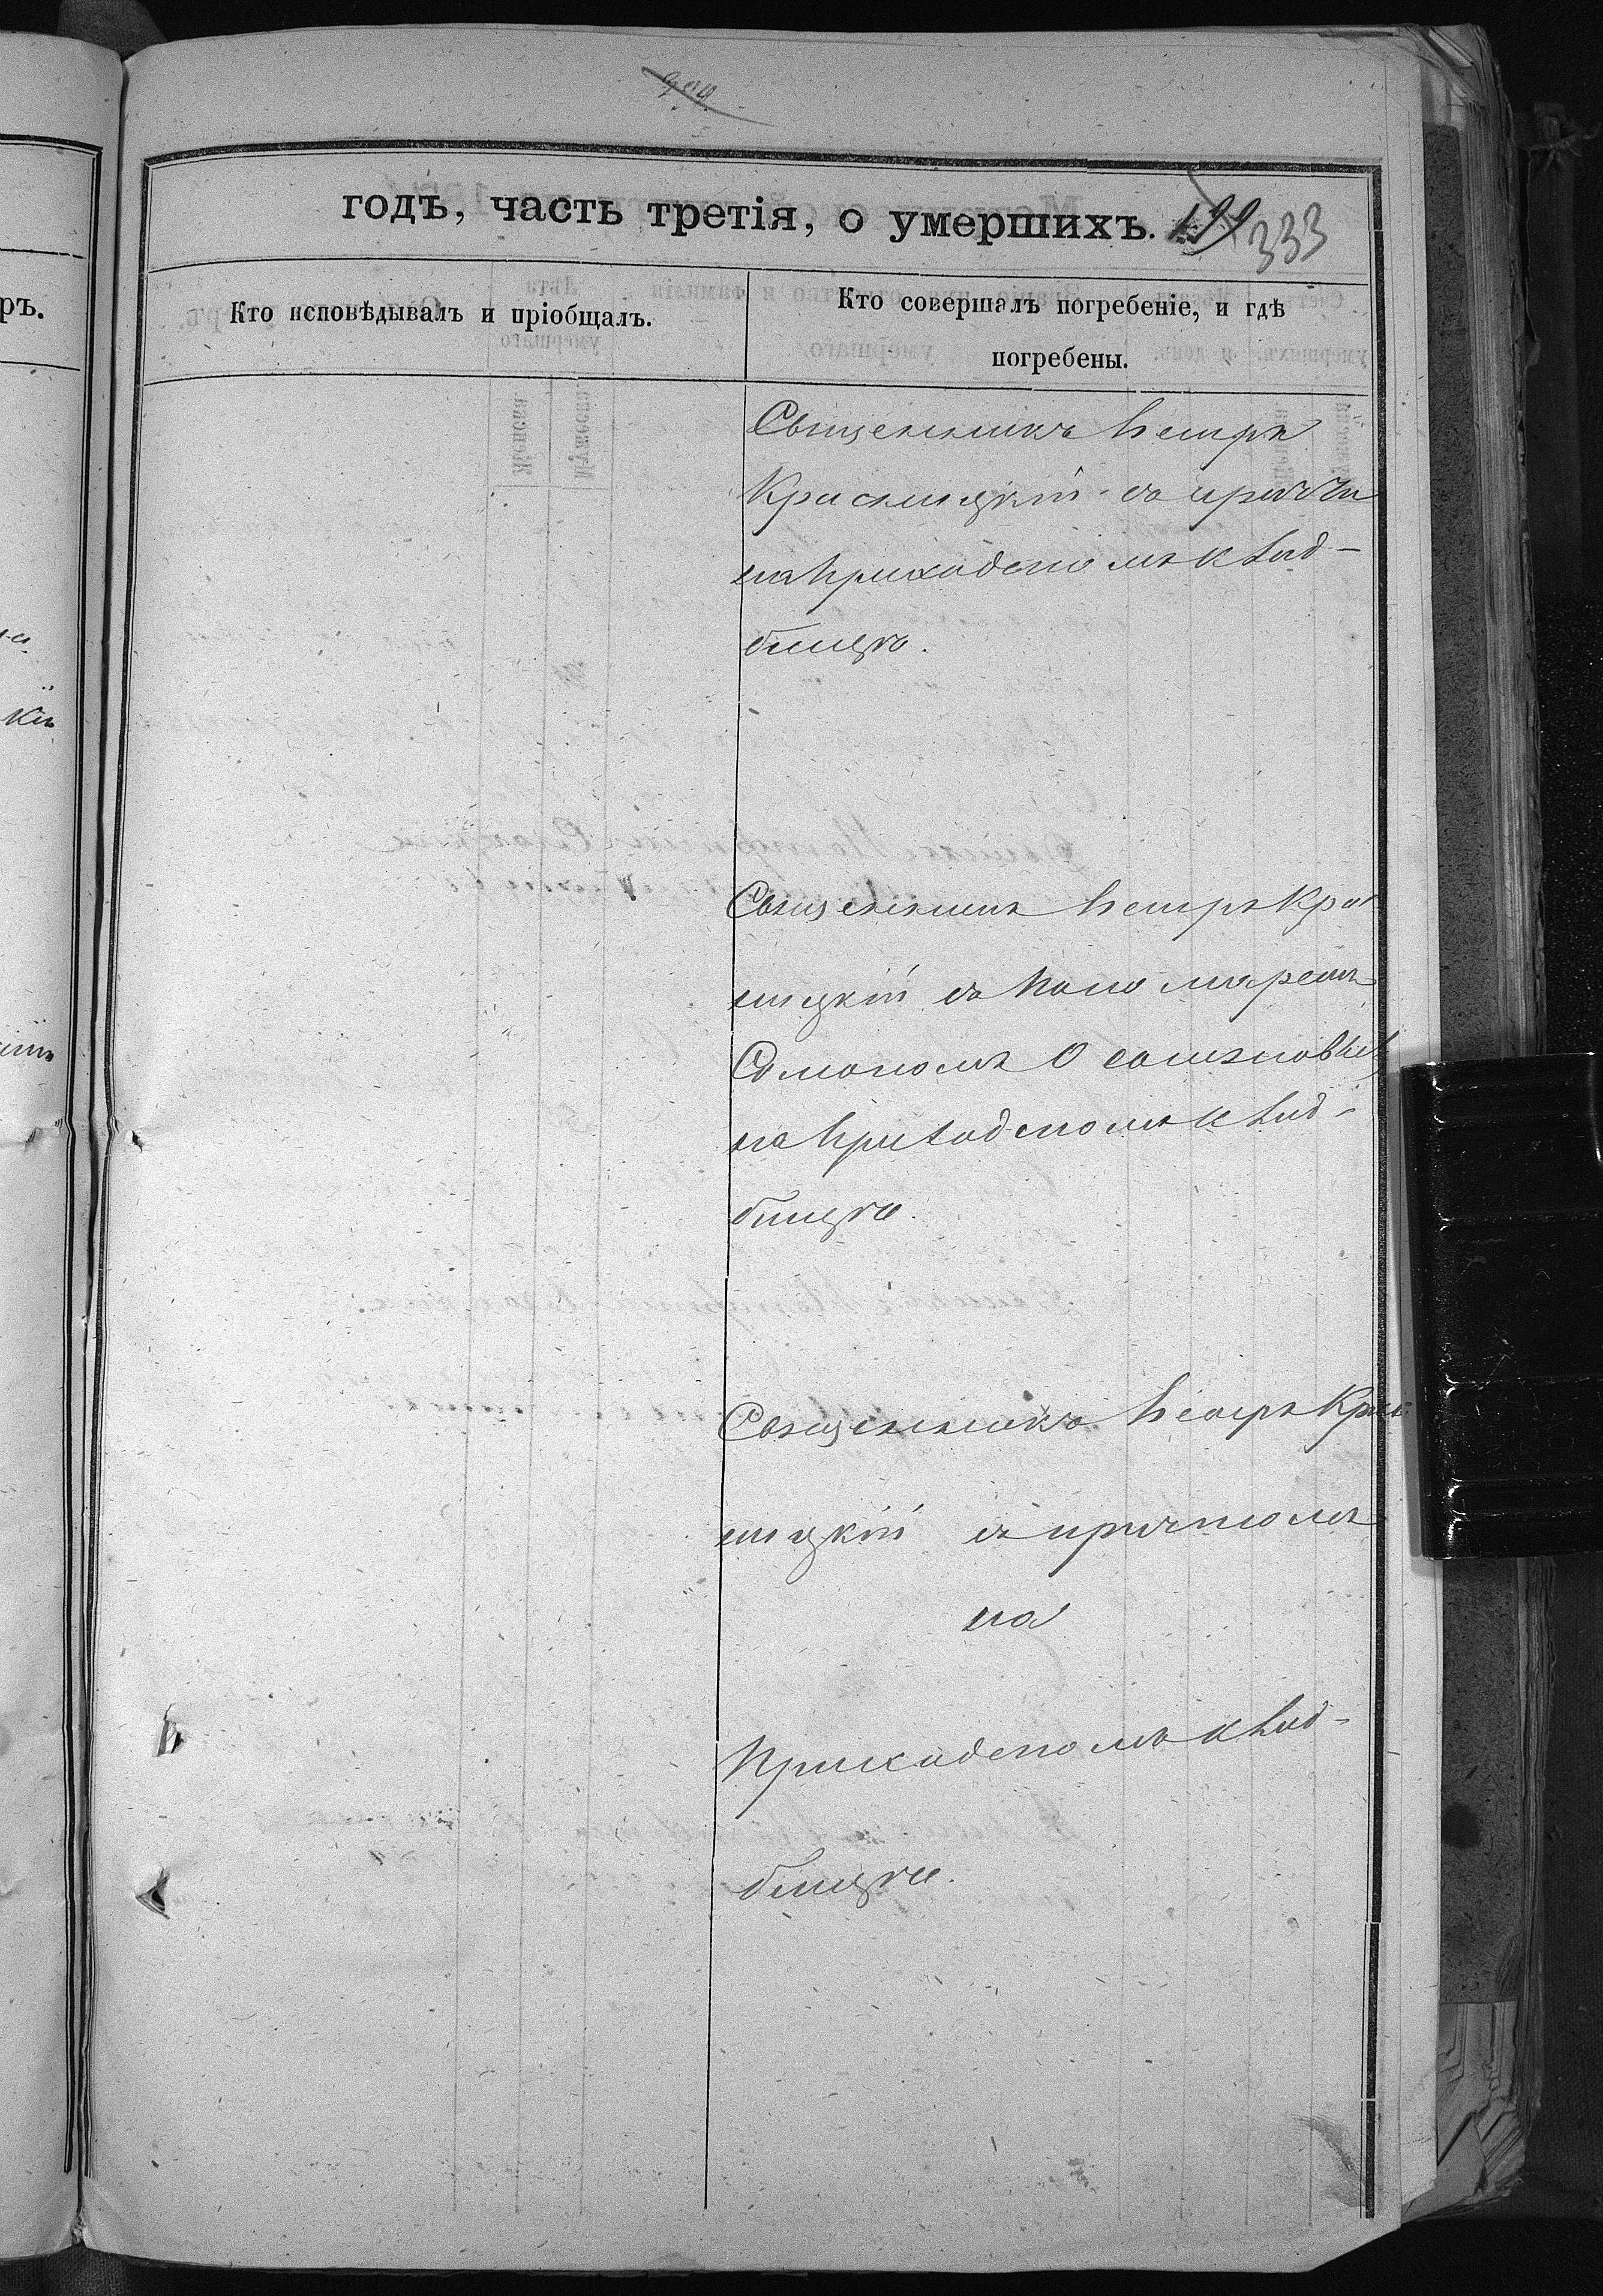 годъ, часть третія, о умершихъ. 199 333
Кто исповѣдывалъ и пріобщалъ.
Кто совершалъ погребеніе, и гдѣ
погребены.
Священникъ Петръ
Красницкій съ причт
на приходскомъ клад-
бищѣ.
Священникъ Петръ Крас
ницкій съ пономаремъ
на приходскомъ клад-
бищѣ.
Священникъ Петръ Крас
ницкій съ причтомъ
на
Приходскомъ клад-
бищѣ.